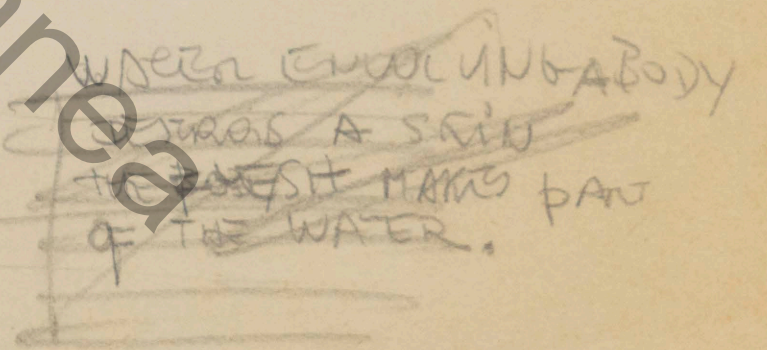 WATER ENVOLVING A BODY
A SKIN
THE FLESH MAKES PART
OF THE WATER.
nea